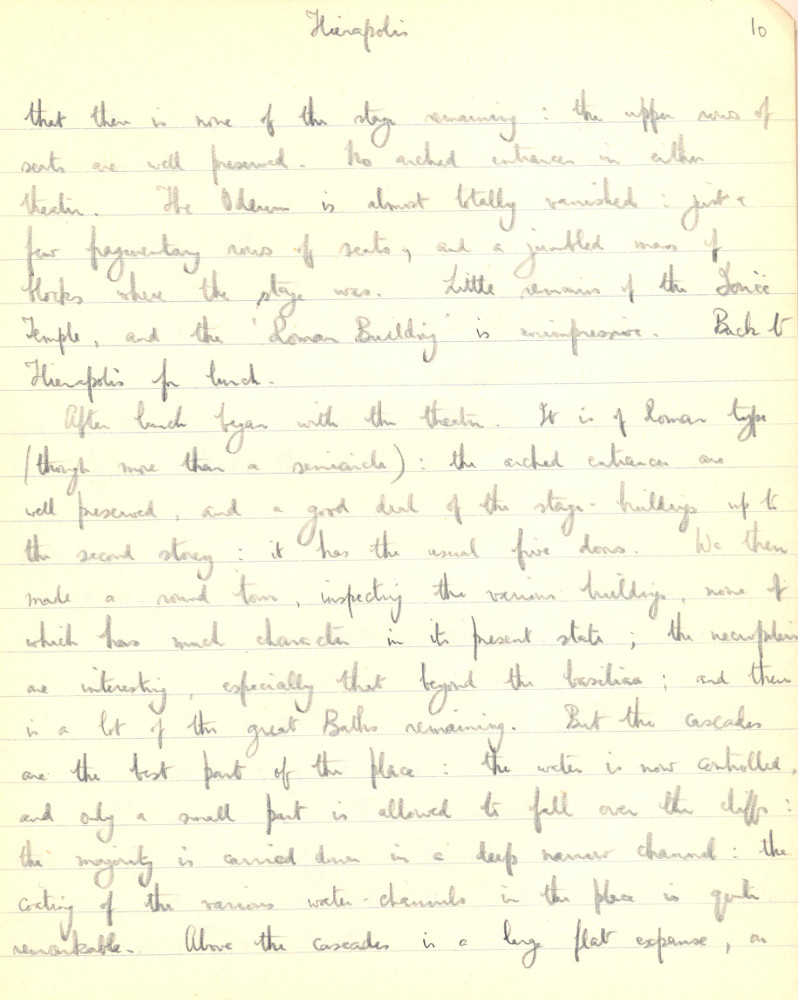 Hierapolis
10
that there is none of the stage remaining : the upper rows of
seats are well preserved. No arched entrances in either
theatre. The Odeum is almost totally vanished : just a
few fragmentary rows of seats, and a jumbled mass of
blocks where the stage was. Little remains of the Ionic
Temple, and the 'Roman Building' is unimpressive. Back to
Hierapolis for lunch.
After lunch began with the theatre. It is of Roman type
(though more than a semicircle) : the arched entrances are
well preserved, and a good deal of the stage-buildings up to
the second storey : it has the usual five doors. We then
made a round tour, inspecting the various buildings, none of
which has much character in its present state ; the necropoleis
are interesting, especially that beyond the basilica ; and there
is a lot of the great Baths remaining. But the cascades
are the best part of the place : the water is now controlled,
and only a small part is allowed to fall over the cliffs :
the majority is carried down in a deep narrow channel : the
coating of the various water-channels in the place is quite
remarkable. Above the cascades is a large flat expanse, on